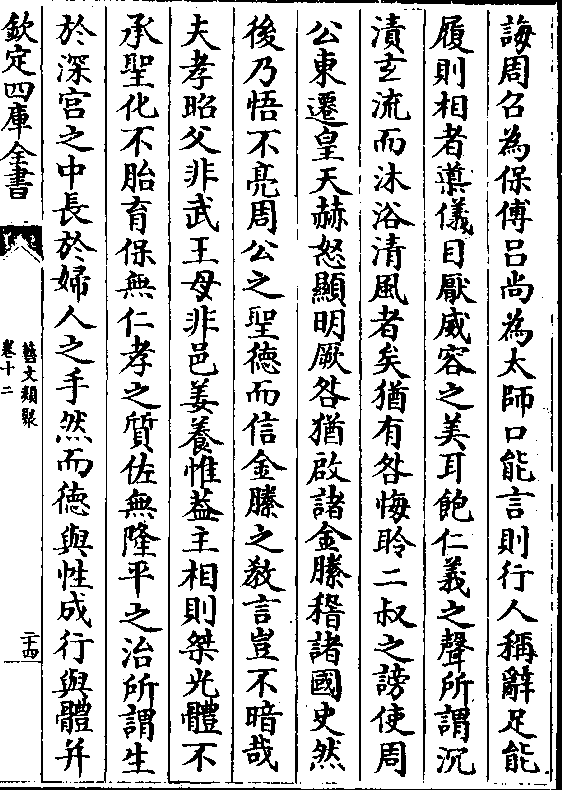 誨周召為保傅呂尚為太師口能言則行人稱辭足能
履則相者𨗳儀目厭威容之美耳飽仁義之聲所謂沉
漬𤣥流而沐浴清風者矣猶有咎悔聆二叔之謗使周
公東遷皇天赫怒顯明厥咎猶啟諸金縢稽諸國史然
後乃悟不亮周公之聖徳而信金縢之教言豈不暗哉
夫孝昭父非武王母非邑姜養惟蓋主相則桀光體不
承聖化不胎育保無仁孝之質佐無隆平之治所謂生
於深宫之中長於婦人之手然而徳與性成行與體并
欽定四庫全書
藝文類聚
卷十二
二十四